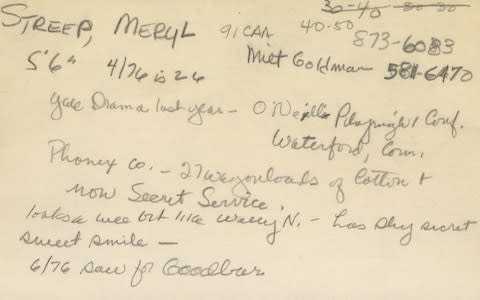 30-40
STREEP, MERYL 9/CAN 40-50
873-6083
5'6" 4/76 is 26 Milt Goldman 581-6470
Yale Drama last year - O'Neill Playwright Conf.
Waterford, Conn.
Phonex co. - 27 wagonloads of Cotton +
now Secret Service.
looks a wee bit like Wally N. - has shy secret
sweet smile -
6/76 saw for Goodbar